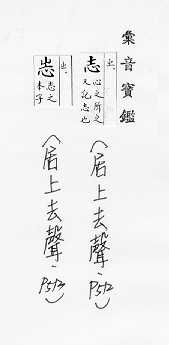 彙音寶鑑
出.
志 心之所之
又記志也
(居上去聲, P512)
出.
志之
本字
(居上去聲, P513)